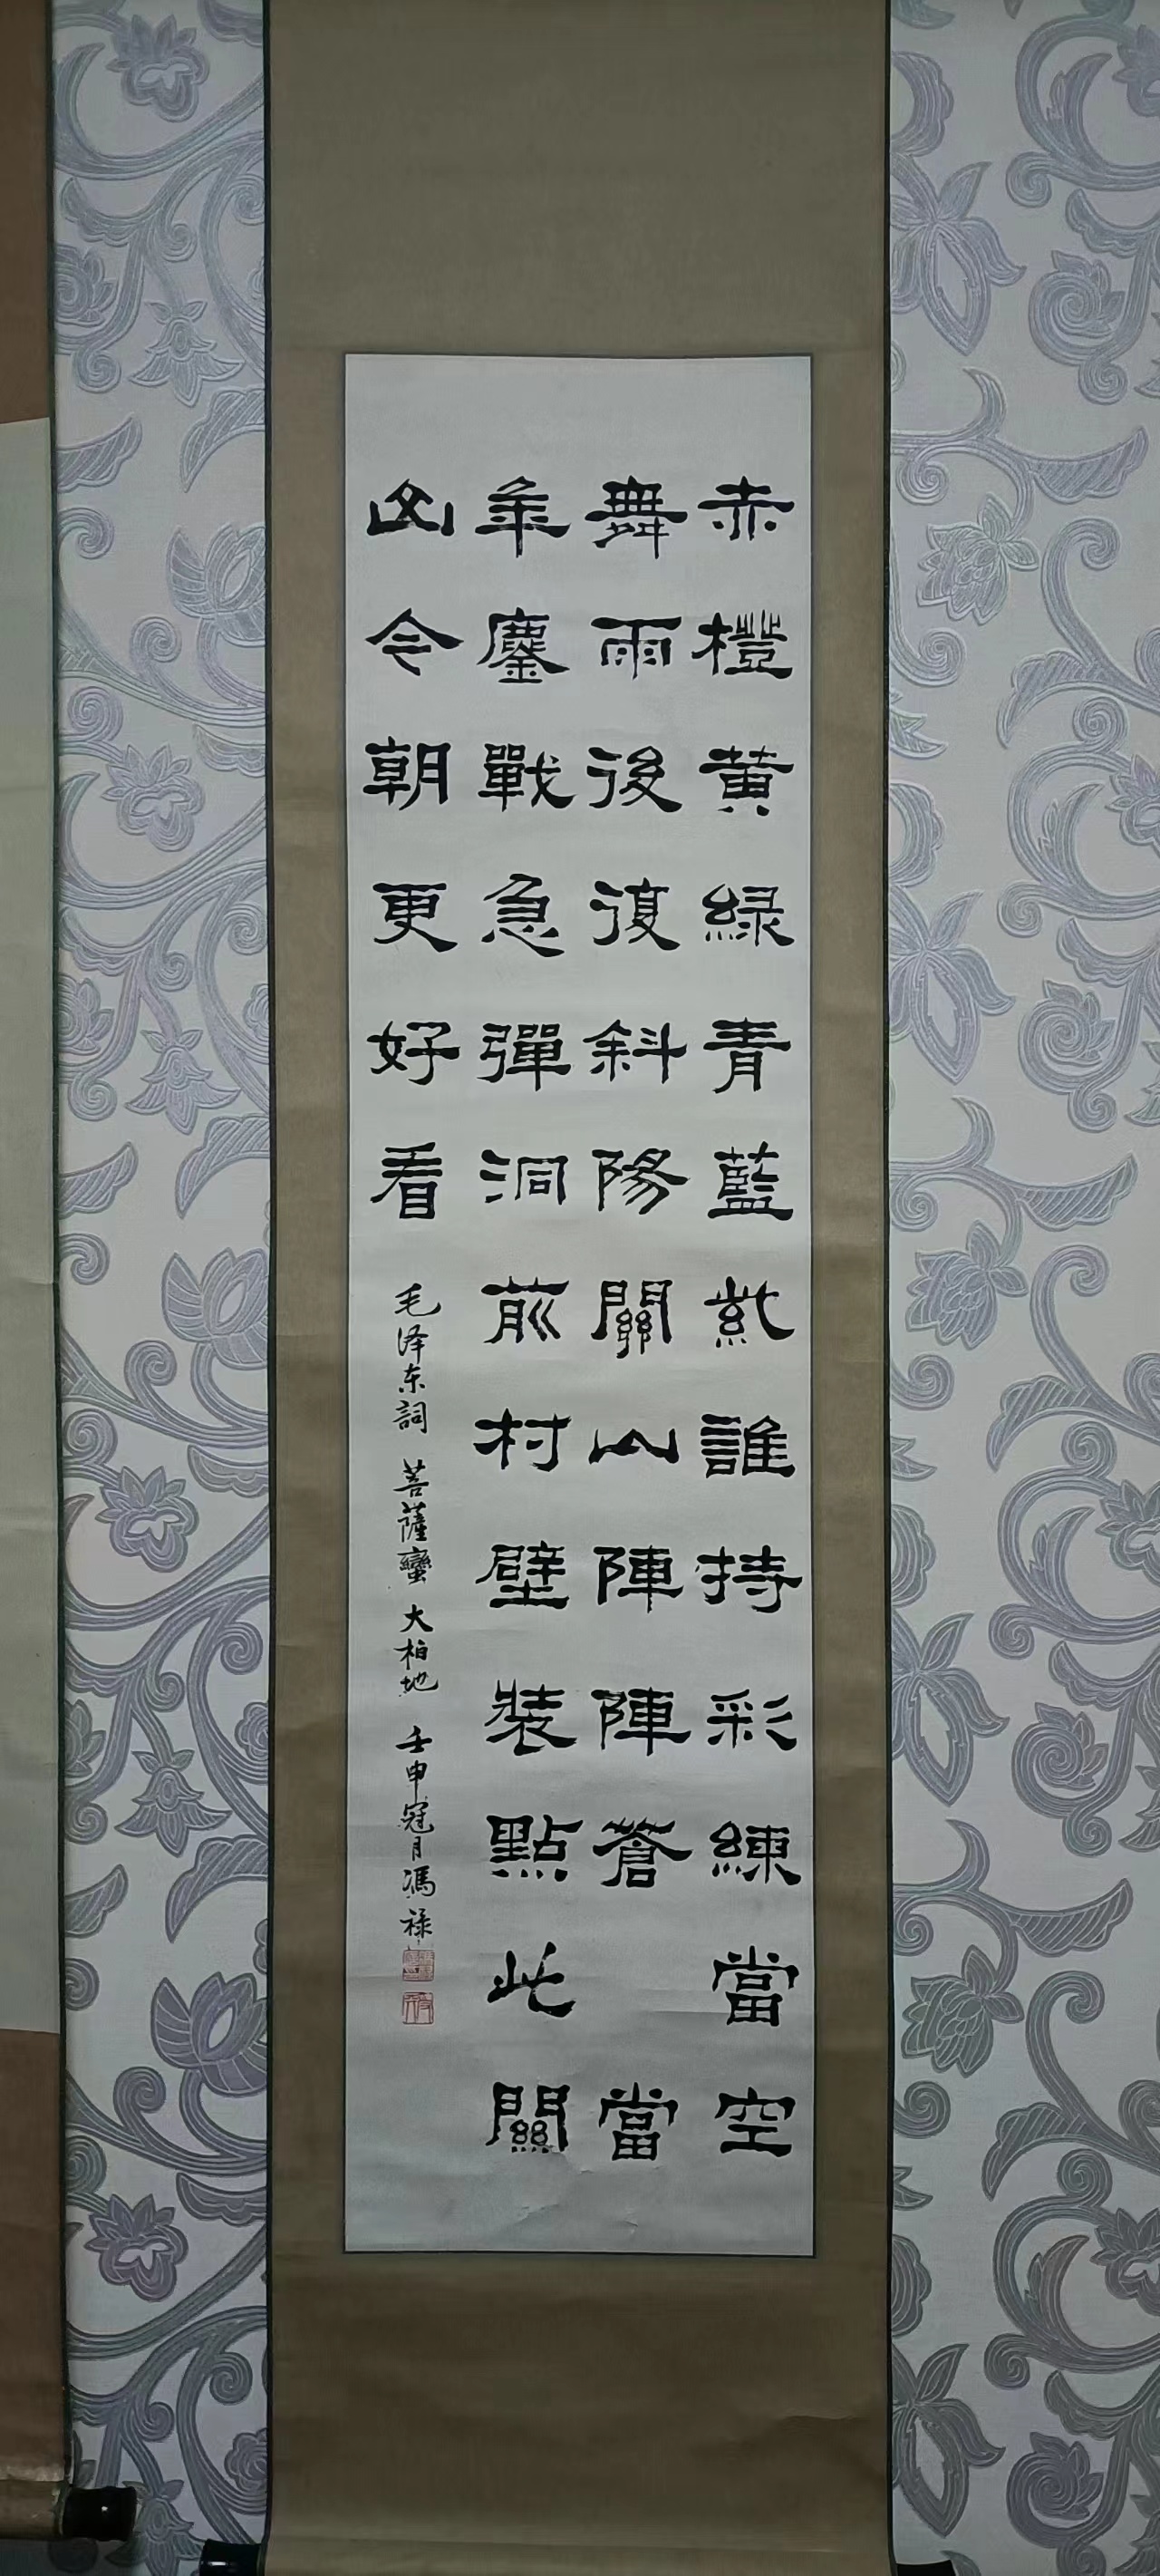 赤橙黄緑青藍紫誰持彩練當空
舞雨後復斜陽關山陣陣蒼當
年鏖戰急彈洞前村壁裝點此關
山今朝更好看
毛泽东詞 菩薩蠻 大柏地 壬申冠月馮禄